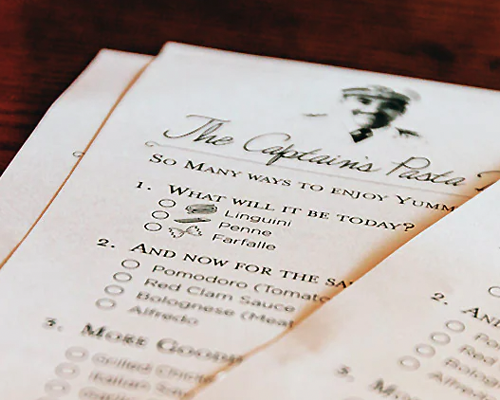 The Captain's Pasta
So Many ways to enjoy Yumm
1. What will it be today?
Linguini
Penne
Farfalle
2. And now for the sa
Pomodoro (Tomato
Red Clam Sauce
Bolognese (Meat
Alfredo
3. More Good
Grilled Chick
Italian Sa
2. An
Po
Red
Bolog
Alfred
3. Mo